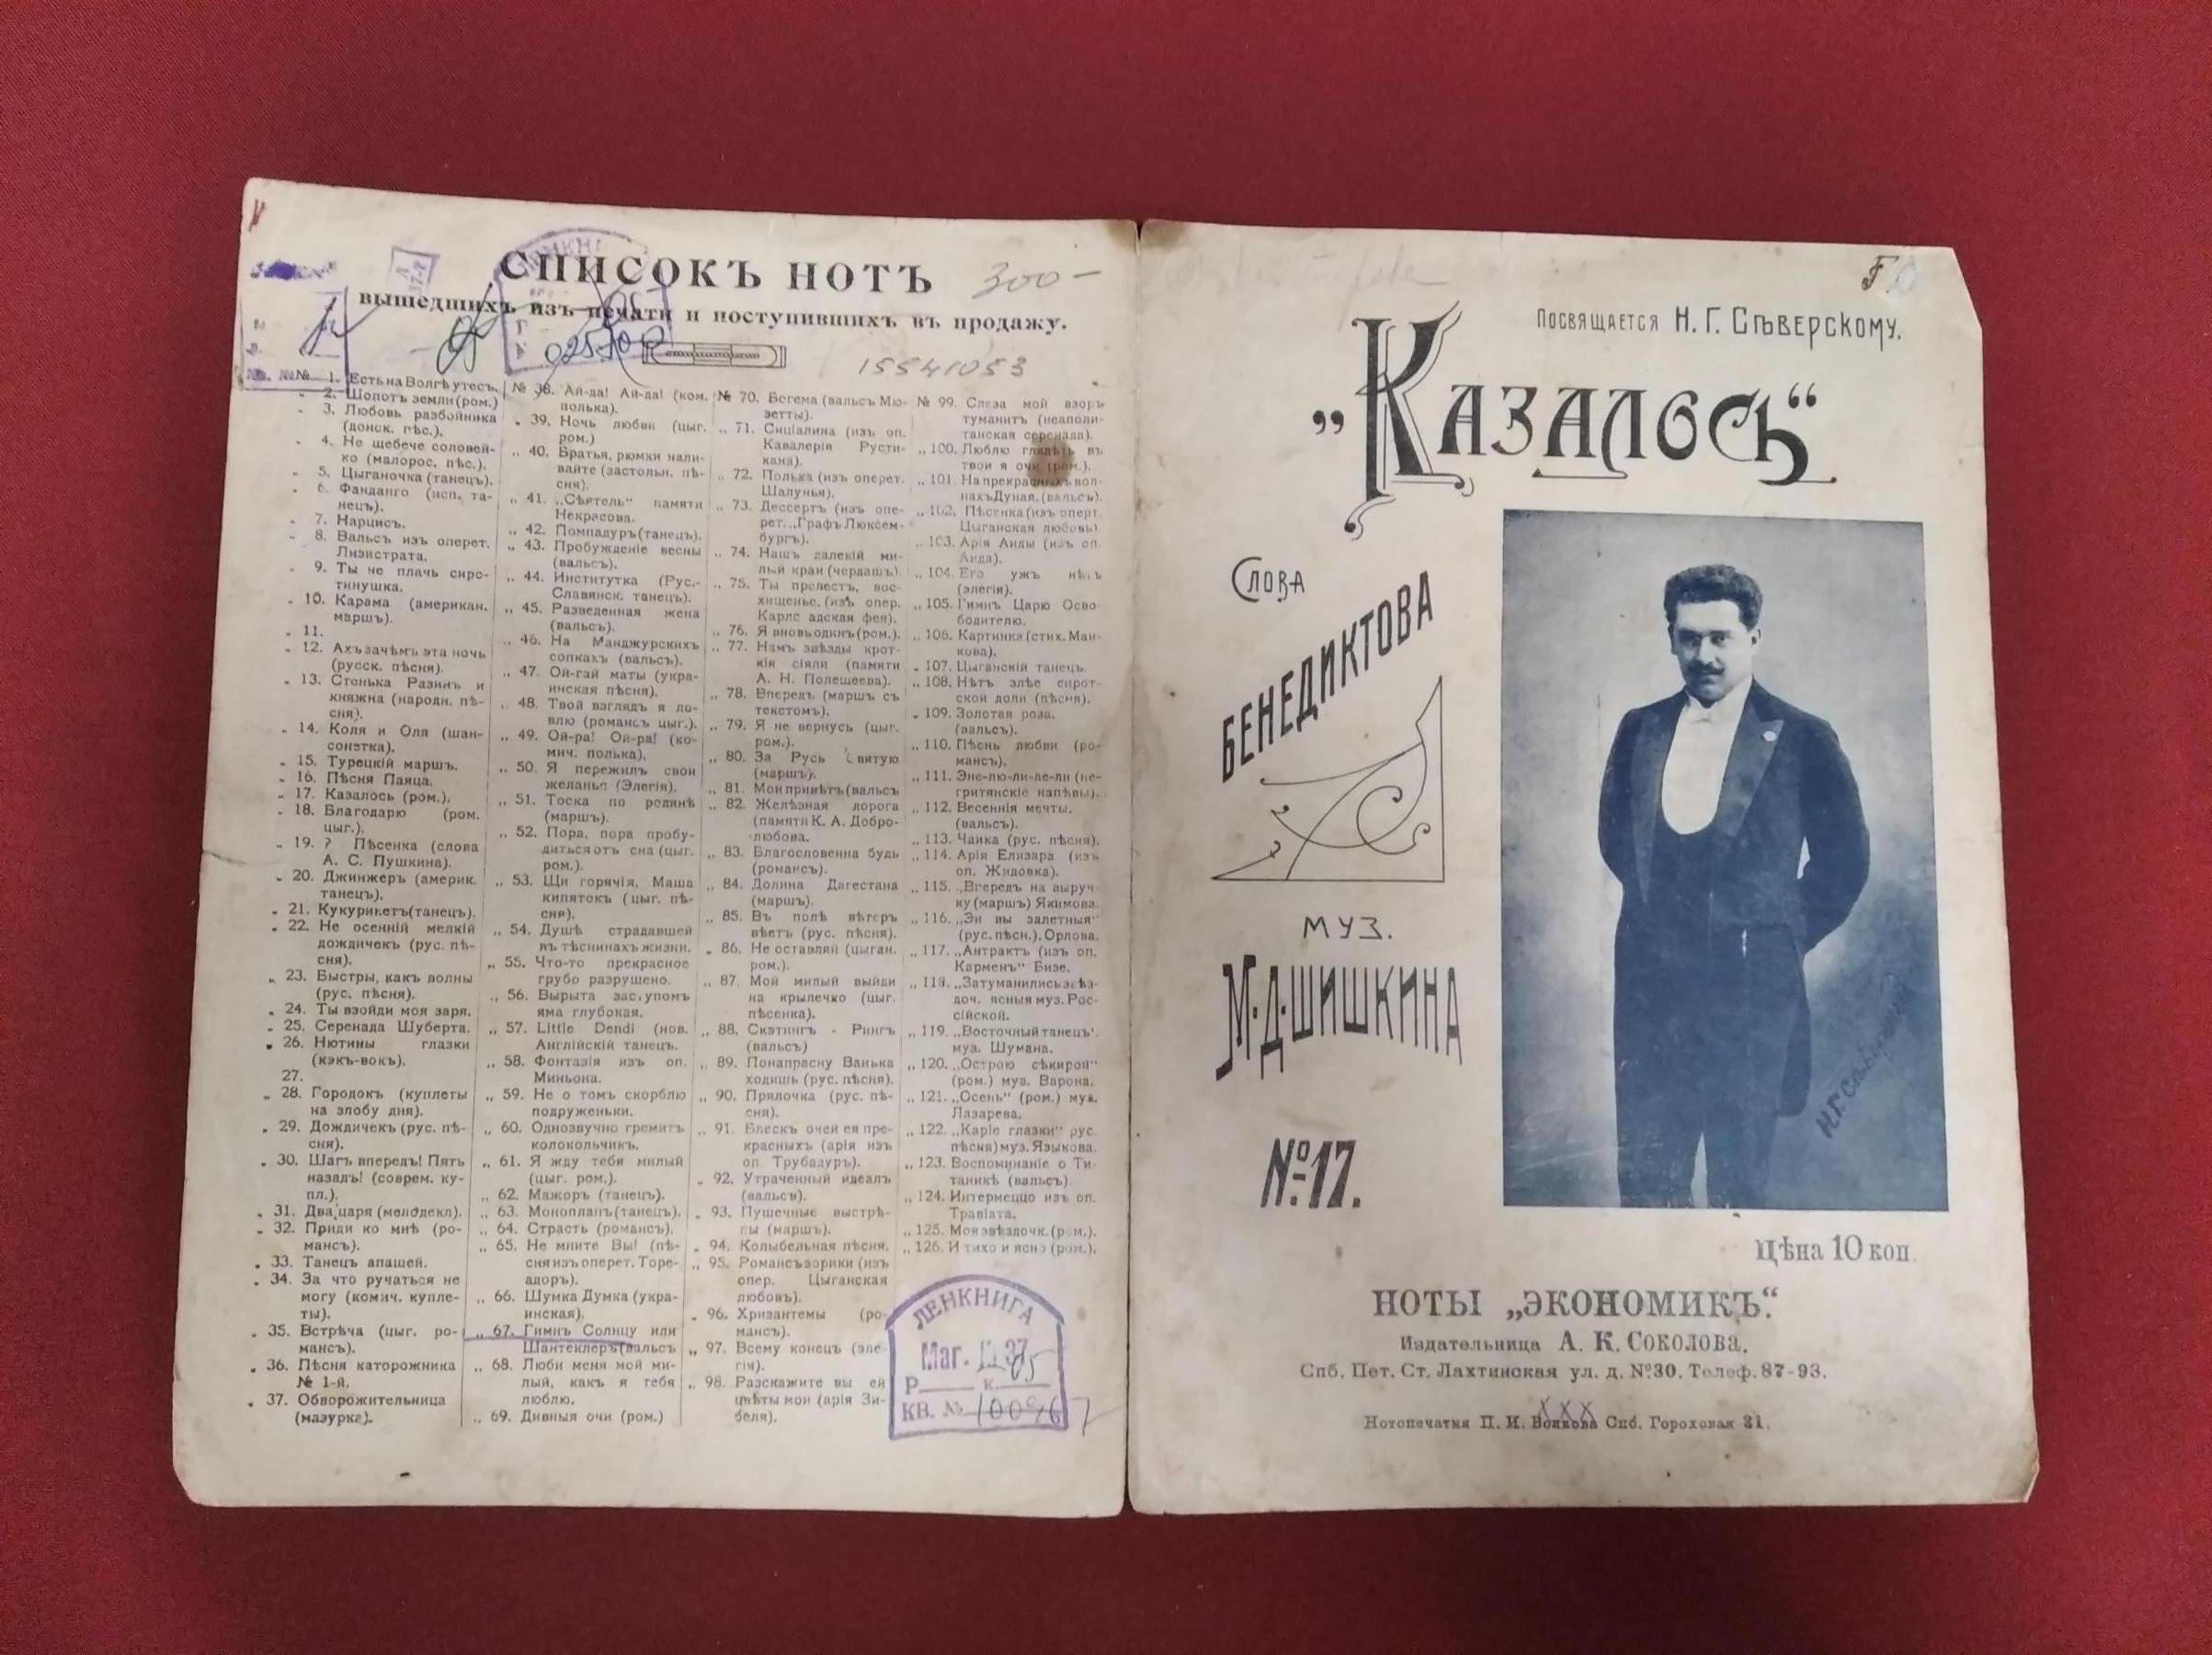 СПИСОКЪ НОТЪ
300-
вышедшихъ изъ печати и поступившихъ въ продажу.
02570
15541053
№№ 1. Есть на Волгѣ утесъ.
2. Шопотъ земли (ром.)
3. Любовь разбойника
(донск. пѣс.).
4. Не щебече соловей-
ко (малорос. пѣс.).
5. Цыганочка (танецъ).
6. Фанданго (исп. та-
нецъ).
7. Нарцисъ.
8. Вальсъ изъ оперет.
Лизистрата.
9. Ты не плачь сиро-
тинушка.
10. Карама (американ.
маршъ).
11.
12. Ахъ зачѣмъ эта ночь
(русск. пѣсня).
13. Стенька Разинъ и
княжна (народн. пѣ-
сня).
14. Коля и Оля (шан-
сонетка).
15. Турецкій маршъ.
16. Пѣсня Паяца.
17. Казалось (ром.).
18. Благодарю (ром.
цыг.).
19. ? Пѣсенка (слова
А. С. Пушкина).
20. Джинжеръ (америк.
танецъ).
21. Кукурикетъ (танецъ).
22. Не осенній мелкій
дождичекъ (рус. пѣ-
сня).
23. Быстры, какъ волны
(рус. пѣсня).
24. Ты взойди моя заря.
25. Серенада Шуберта.
26. Нютины глазки
(кэкъ-вокъ).
27.
28. Городокъ (куплеты
на злобу дня).
29. Дождичекъ (рус. пѣ-
сня).
30. Шагъ впередъ! Пять
назадъ! (соврем. ку-
пл.).
31. Два царя (мелодекл).
32. Приди ко мнѣ (ро-
мансъ).
33. Танецъ апашей.
34. За что ручаться не
могу (комич. купле-
ты).
35. Встрѣча (цыг. ро-
мансъ).
36. Пѣсня каторожника
№ 1-й.
37. Обворожительница
(мазурка).
№ 38. Ай-да! Ай-да! (ком.
полька).
39. Ночь любви (цыг.
ром.)
„ 40. Братья, рюмки нали-
вайте (застольн. пѣ-
сня).
„ 41. „Сѣятель" памяти
Некрасова.
„ 42. Помпадуръ (танецъ).
„ 43. Пробужденіе весны
(вальсъ).
„ 44. Институтка (Рус.-
Славянск. танецъ).
„ 45. Разведенная жена
(вальсъ).
„ 46. На Манджурскихъ
сопкахъ (вальсъ).
„ 47. Ой-гай маты (укра-
инская пѣсня).
„ 48. Твой взглядъ я ло-
влю (романсъ цыг.).
„ 49. Ой-ра! Ой-ра! (ко-
мич. полька).
„ 50. Я пережилъ свои
желанья (Элегія).
„ 51. Тоска по родинѣ
(маршъ).
„ 52. Пора, пора пробу-
диться отъ сна (цыг.
ром.).
„ 53. Щи горячія, Маша
кипятокъ (цыг. пѣ-
сня).
„ 54. Душѣ страдавшей
въ тѣснинахъ жизни.
„ 55. Что-то прекрасное
грубо разрушено.
„ 56. Вырыта заступомъ
яма глубокая.
„ 57. Little Dendi (нов.
Англійскій танецъ.
„ 58. Фонтазія изъ оп.
Миньона.
„ 59. Не о томъ скорблю
подруженьки.
„ 60. Однозвучно гремитъ
колокольчикъ.
„ 61. Я жду тебя милый
(цыг. ром.).
„ 62. Мажоръ (танецъ).
„ 63. Монопланъ (танецъ).
„ 64. Страсть (романсъ).
„ 65. Не мните Вы! (пѣ-
сня изъ оперет. Торе-
адоръ).
„ 66. Шумка Думка (укра-
инская).
„ 67. Гимнъ Солнцу или
Шантеклеръ (вальсъ
„ 68. Люби меня мой ми-
лый, какъ я тебя
люблю.
„ 69. Дивныя очи (ром.)
№ 70. Богема (вальсъ Мю-
зетты).
„ 71. Сициліана (изъ оп.
Кавалерія Русти-
кана).
„ 72. Полька (изъ оперет.
Шалунья).
„ 73. Дессертъ (изъ опе-
рет. „Графъ Люксем-
бургъ).
„ 74. Нашъ далекій ми-
лый край (чердашъ).
„ 75. Ты прелесть, вос-
хищенье, (изъ опер.
Карлс адская фея).
„ 76. Я вновь одинъ (ром.).
„ 77. Намъ звѣзды крот-
кія сіяли (памяти
А. Н. Полещеева).
„ 78. Впередъ (маршъ съ
текстомъ).
„ 79. Я не вернусь (цыг.
ром.).
„ 80. За Русь Святую
(маршъ).
„ 81. Мой привѣтъ (вальсъ
„ 82. Желѣзная дорога
(памяти К. А. Добро-
любова.
„ 83. Благословенна будь
(романсъ).
„ 84. Долина Дагестана
(маршъ).
„ 85. Въ полѣ вѣтеръ
вѣетъ (рус. пѣсня).
„ 86. Не оставляй (цыган.
ром.).
„ 87. Мой милый выйди
на крылечко (цыг.
пѣсенка).
„ 88. Скэтингъ - Рингъ
(вальсъ)
„ 89. Понапрасну Ванька
ходишь (рус. пѣсня).
„ 90. Прялочка (рус. пѣ-
сня).
„ 91. Блескъ очей ея пре-
красныхъ (арія изъ
оп. Трубадуръ).
„ 92. Утраченный идеалъ
(вальсъ).
„ 93. Пушечные выстрѣ-
лы (маршъ).
„ 94. Колыбельная пѣсня.
„ 95. Романсъ зорики (изъ
опер. Цыганская
любовь).
„ 96. Хризантемы (ро-
мансъ).
„ 97. Всему конецъ (эле-
гія).
„ 98. Разскажите вы ей
цвѣты мои (арія Зи-
беля).
№ 99. Слеза мой взоръ
туманитъ (неаполи-
танская серенада).
„ 100. Люблю глядѣть въ
твои я очи (ром.).
„ 101. На прекрасныхъ вол-
нахъ Дуная. (вальсъ).
„ 102. Пѣсенка (изъ оперт.
Цыганская любовь).
„ 103. Арія Аиды (изъ оп.
Аида).
„ 104. Его ужъ нѣтъ
(элегія).
„ 105. Гимнъ Царю Осво-
бодителю.
„ 106. Картинка (стих. Май-
кова).
„ 107. Цыганскій танецъ.
„ 108. Нѣтъ злѣе сирот-
ской доли (пѣсня).
„ 109. Золотая роза.
(вальсъ).
„ 110. Пѣснь любви (ро-
мансъ).
„ 111. Эне-лю-ли-ле-ли (не-
гритянскіе напѣвы).
„ 112. Весеннія мечты.
(вальсъ).
„ 113. Чайка (рус. пѣсня).
„ 114. Арія Елизара (изъ
оп. Жидовка).
„ 115. „Впередъ на выруч-
ку (маршъ) Якимова.
„ 116. „Эй вы залетныя"
(рус. пѣсн.). Орлова.
„ 117. „Антрактъ (изъ оп.
Карменъ" Бизе.
„ 118. „Затуманились звѣз-
доч. ясныя муз. Рос-
сійской.
„ 119. „Восточный танецъ".
муз. Шумана.
„ 120. „Острою сѣкирой"
(ром.) муз. Варона.
„ 121. „Осень" (ром.) муз.
Лазарева.
„ 122. „Каріе глазки" рус.
пѣсня) муз. Языкова.
„ 123. Воспоминаніе о Ти-
таникѣ (вальсъ)
„ 124. Интермеццо изъ оп.
Травіата.
„ 125. Моя звѣздочк. (ром.).
„ 126. И тихо и ясно (ром.).
ЛЕНКНИГА
Маг.
Р К.
КВ. №
Посвящается Н. Г. Сѣверскому.
„Казалось"
Слова
Бенедиктова
муз.
М. Д. Шишкина
№ 17.
Н. Г. Сѣверскій
Цѣна 10 коп.
НОТЫ „ЭКОНОМИКЪ".
Издательница А. К. СОКОЛОВА.
Спб. Пет. Ст. Лахтинская ул. д. № 30. Телеф. 87-93.
Нотопечатня П. И. Волкова Спб. Гороховая 31.